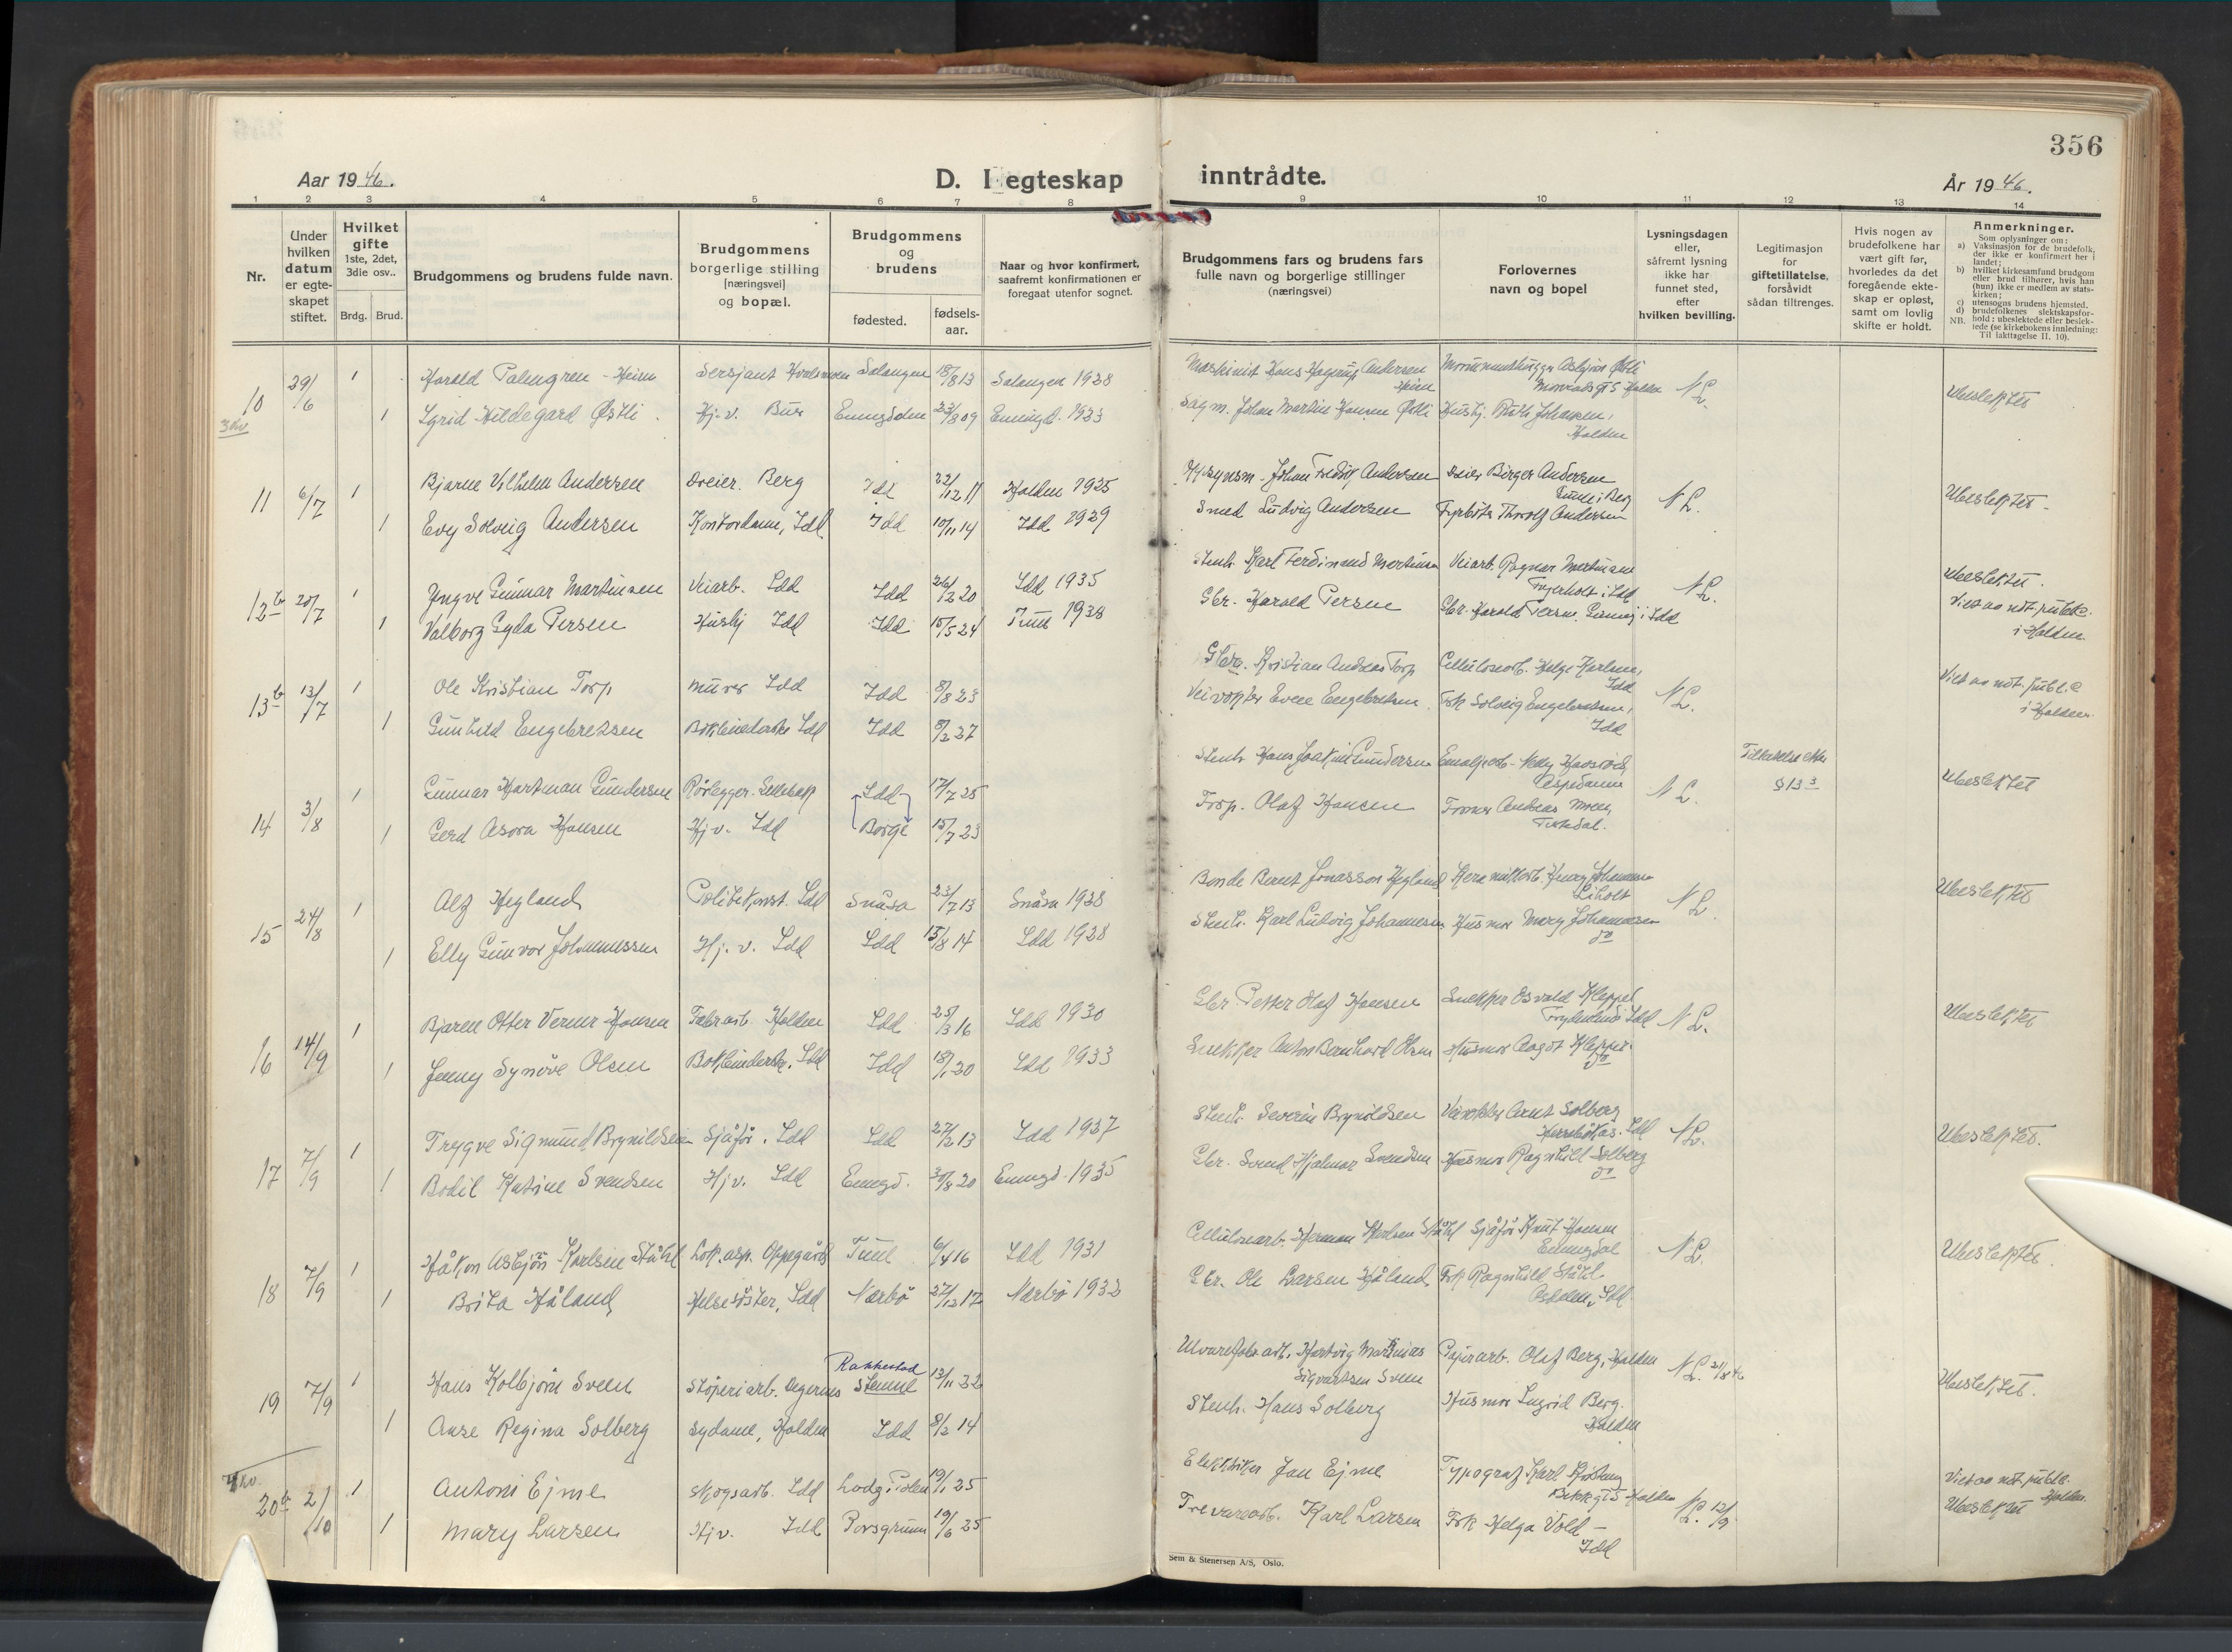 356
Aar 1946.
D. I egteskap
inntrådte.
År 1946.
1 2 3 4 5 6 7 8 9 10 11 12 13 14
Nr.
Under hvilken datum er egte-skapet stiftet.
Hvilket gifte 1ste, 2det, 3die osv..
Brdg. Brud.
Brudgommens og brudens fulde navn.
Brudgommens borgerlige stilling [næringsvei] og bopæl.
Brudgommens og brudens
fødested.
fødsels-aar.
Naar og hvor konfirmert, saafremt konfirmationen er foregaat utenfor sognet.
Brudgommens fars og brudens fars fulle navn og borgerlige stillinger (næringsvei)
Forlovernes navn og bopel
Lysningsdagen eller, såfremt lysning ikke har funnet sted, efter hvilken bevilling.
Legitimasjon for giftetillatelse, forsåvidt sådan tiltrenges.
Hvis nogen av brudefolkene har vært gift før, hvorledes da det foregående ekte-skap er opløst, samt om lovlig skifte er holdt.
Anmerkninger.
Som oplysninger om:
a) Vaksinasjon for de brudefolk, der ikke er konfirmert her i landet;
b) hvilket kirkesamfund brudgom eller brud tilhører, hvis han (hun) ikke er medlem av stats-kirken;
c) utensogns brudens hjemsted.
d) brudefolkenes slektskapsfor-hold: ubeslektede eller beslek-
NB. tede (se kirkebokens innledning: Til iakttagelse II. 10).
10 29/6 1 Harald Palmgren - Heim Sersjant Solangen 18/8 13 Salangen 1928 Maskinist Hans Hagrup Andersen Heim Asbjørn Østli Halden N.L. Ubeslektet
1 Sgrid Hildegard Østli Hj.v. Bur Enningdalen 23/8 09 Enningd. 1923 Sagm. Johan Martin Hansen Østli Husbj. Ruth Johansen, Halden
11 6/7 1 Bjarne Vilhelm Andersen Dreier. Berg Idd 22/12 11 Halden 1925 Johan Fredrik Andersen Dreier Birger Andersen Berg N.L. Ubeslektet
1 Evy Solveig Andersen Kontordame, Idd Idd 10/11 14 Idd 1929 Smed Ludvig Andersen Fyrbøter Thorolf Andersen
12 b 20/7 1 Yngve Gunnar Martinsen Veiarb. Idd Idd 26/2 20 Idd 1935 Stenh. Karl Ferdinand Martinsen Veiarb. Ragnar Martinsen i Idd N.L. Ubeslektet.
1 Valborg Gyda Persen Husbj Idd Idd 15/5 24 Tune 1938 Gbr. Harald Persen Gbr. Harald Persen i Idd Viet av not. publ. i Halden
13 b 13/7 1 Ole Kristian Torp Murer Idd Idd 8/8 23 Gbr. Kristian Andreas Torp Cellulosearb. Helge Karlsen, Idd N.L. Viet av not. publ. i Halden
1 Gunhild Engebretsen Bokbinderske Idd Idd 8/2 27 Veivokter Even Engebretsen Frk Solveig Engebretsen, Idd
14 3/8 1 Gunnar Hartman Gundersen Rørlegger. Idd 17/7 25 Stenh. Hans Joakim Gundersen Aspedammen N.L. § 13 3 Ubeslektet
1 Gerd Asora Hansen Hj.v. Idd Borge 15/7 23 Forp. Olaf Hansen Andreas Tistedal.
15 24/8 1 Alf Hegland Politikonst. Idd Snåsa 23/7 13 Snåsa 1928 Bonde Bernt Jonasson Hegland Henry Johannessen Liholt N.L. Ubeslektet
1 Elly Gunvor Johannessen Hj.v. Idd Idd 15/8 14 Idd 1928 Stenh. Karl Ludvig Johannessen Husmor Mary Johannessen do
16 14/9 1 Bjaren Otter Verner Hansen Fabrarb. Halden Idd 25/3 16 Idd 1930 Gbr. Petter Olaf Hansen Snekker Osvald Klepper Idd N.L. Ubeslektet
1 Jenny Synøve Olsen Bokbinderske. Idd Idd 18/1 20 Idd 1933 Snekker Anton Bernhard Olsen Husmor Aagot Klepper. do
17 7/9 1 Trygve Sigmund Brynildsen Sjåfør. Idd Idd 27/2 13 Idd 1937 Stenh. Severin Brynildsen Veivokter Arnt Solberg Idd N.L. Ubeslektet.
1 Bodil Katrine Svendsen Hjv. Idd Enngd. 30/8 20 Enningd. 1935 Gbr. Svend Hjalmar Svendsen Husmor Ragnhild Solberg do
18 7/9 1 Håkon Asbjørn Karlsen Ståhl Lok.asp. Oppegård Tune 6/4 16 Idd 1931 Cellulosearb. Herman Karlsen Ståhl Sjåfør Knut Hansen Enningdal N.L. Ubeslektet.
1 Brita Håland Helsesøster, Idd Nærbø 27/12 17 Nærbø 1932 Gbr. Ole Larsen Håland Frk Ragnhild Ståhl Idd
19 7/9 1 Hans Kolbjørn Sveen Støperiarb. Degernes Rakkestad 13/11 22 Hartvig Martinius Sigvartsen Sveen Papirarb. Olaf Berg, Halden N.L. 21/8 46 Ubeslektet.
1 Anse Regina Solberg Sydame, Halden Idd 8/2 14 Stenh. Hans Solberg Husmor Ingrid Berg. Halden
20 b 2/10 1 Antoni Ejme Skogsarb. Idd Lodz i Polen 19/1 25 Elektriker Jan Ejme Typograf Karl Halden N.L. 12/9 Viet av not. publ. Halden.
1 Mary Larsen Hjv. Idd Porsgrunn 19/6 25 Trevarearb. Karl Larsen Frk Helga Vold - Idd Ubeslektet
Sem & Stenersen A/S, Oslo.